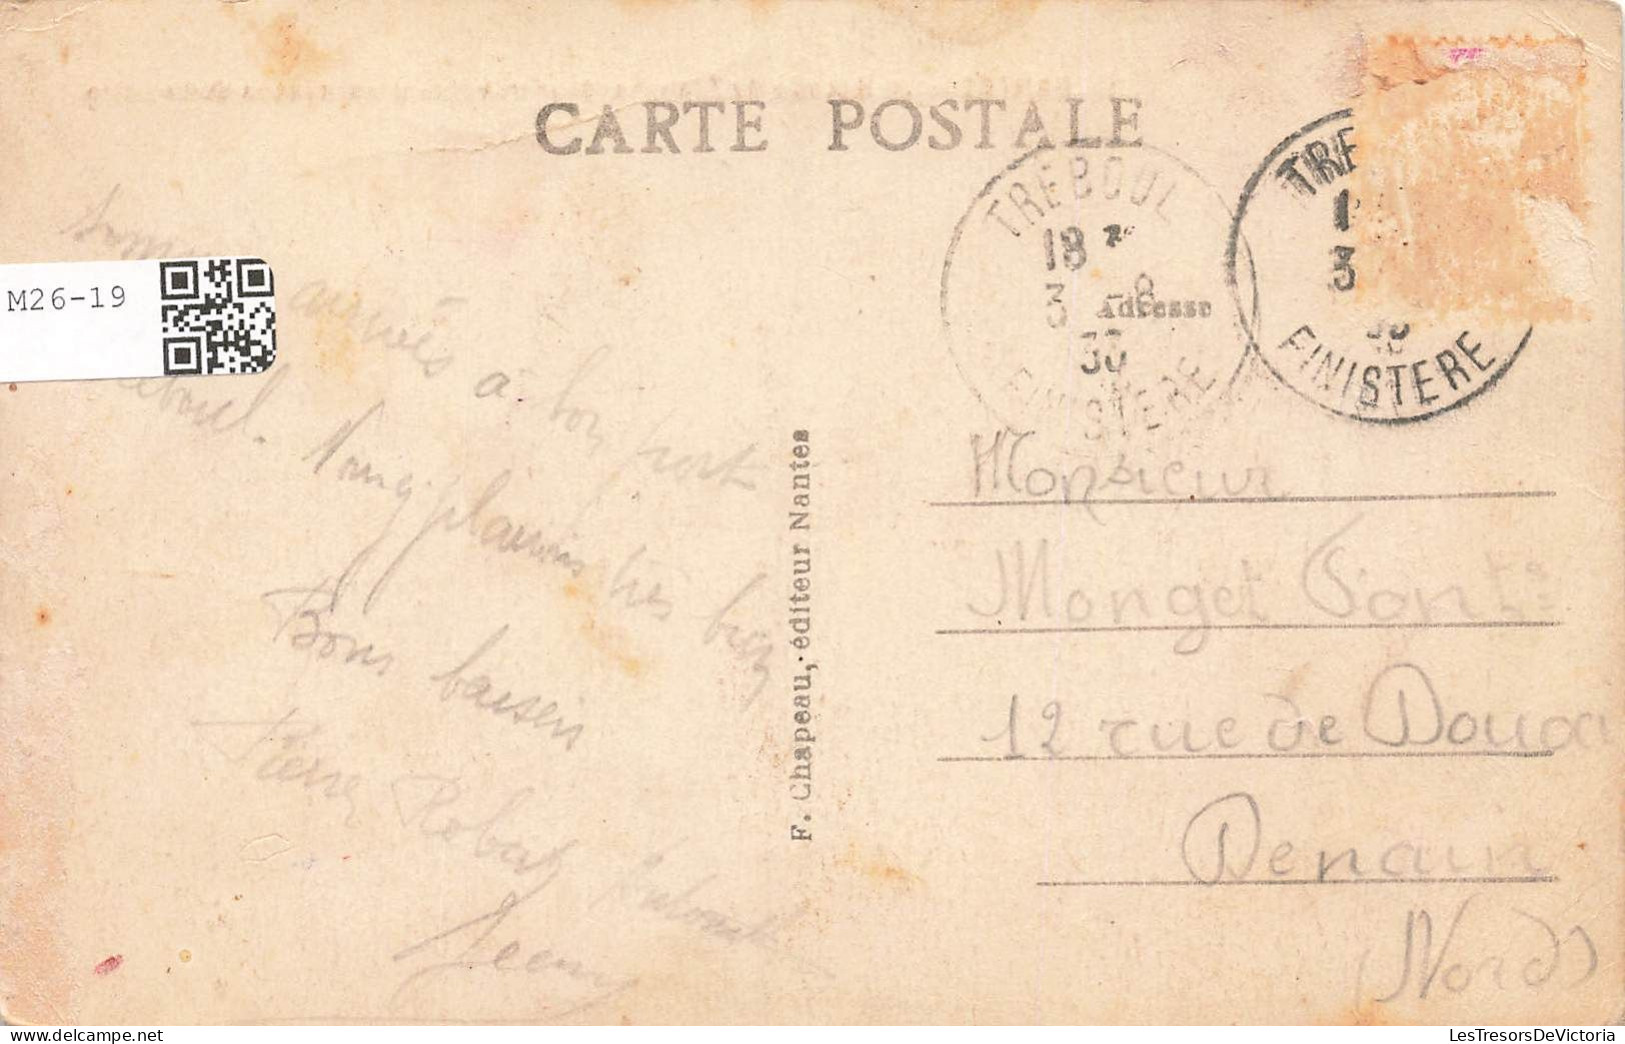 CARTE POSTALE
TRÉBOUL
18
3 -8
33
FINISTERE
TRE
1
3
FINISTERE
Adresse
M26-19
arrivés à bon port
Nous y plaisons très bien
Bons baisers
Pierre Robert
F. Chapeau, éditeur Nantes
Monsieur
Monget
12 rue de Douai
Denain
(Nord)
LesTresorsDeVictoria